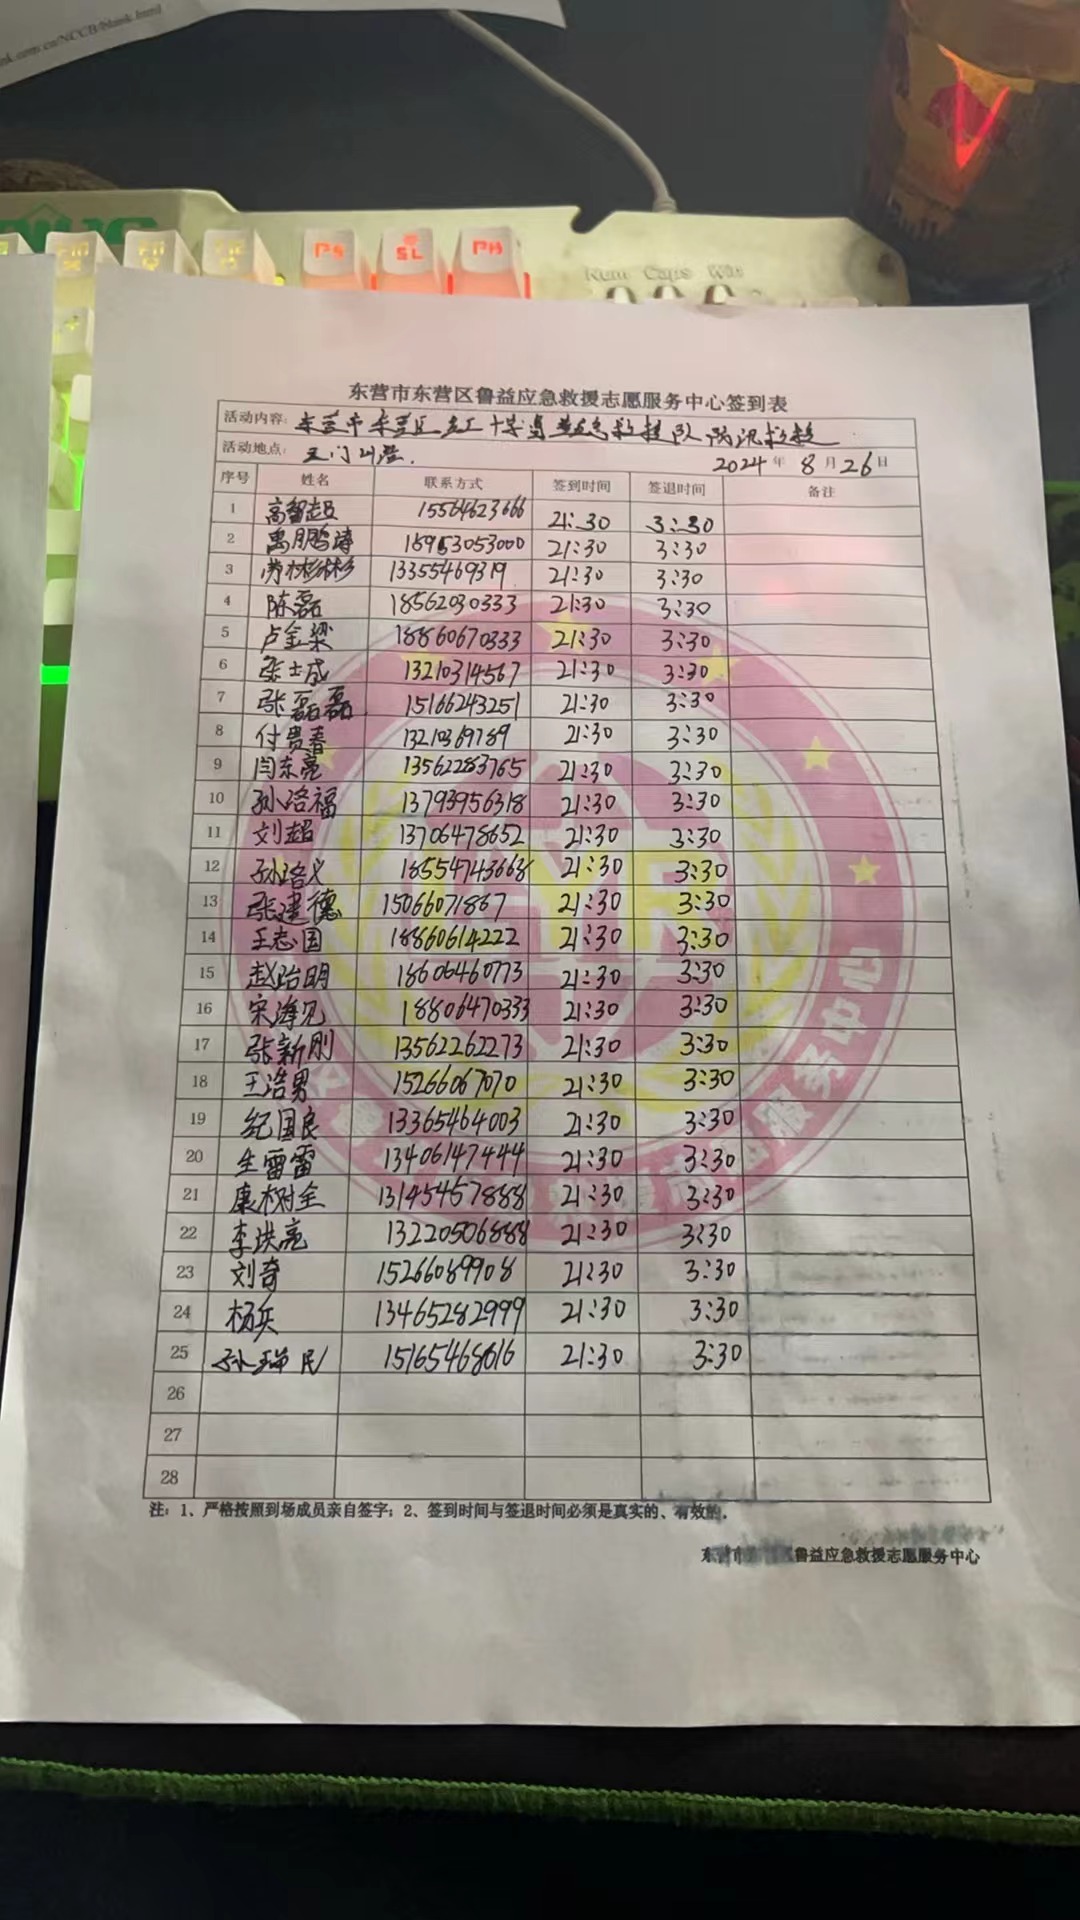 nk.com.cn/NCCB/blank.html
PS SL PH
Num Caps Win
东营市东营区鲁益应急救援志愿服务中心签到表
活动内容: 东营市东营区红十字鲁益应急救援队防汛救援
活动地点: 天门山
2024年8月26日
序号 姓名 联系方式 签到时间 签退时间 备注
1 高智超 15564623666 21:30 3:30
2 禹鹏涛 18953053000 21:30 3:30
3 劳彬彬 13355469319 21:30 3:30
4 陈磊 18562030333 21:30 3:30
5 卢金梁 18860670333 21:30 3:30
6 张士成 13210314567 21:30 3:30
7 张磊磊 15166243251 21:30 3:30
8 付贵春 21:30 3:30
9 闫东亮 13562283765 21:30 3:30
10 孙洛福 13793956318 21:30 3:30
11 刘超 13706478652 21:30 3:30
12 孙路义 18554743668 21:30 3:30
13 张建德 15066071867 21:30 3:30
14 王志国 18860614222 21:30 3:30
15 赵治明 18606460773 21:30 3:30
16 宋海见 18806470333 21:30 3:30
17 张新刚 13562262273 21:30 3:30
18 王浩男 15266067070 21:30 3:30
19 纪国良 13365464003 21:30 3:30
20 生雷雷 13406147444 21:30 3:30
21 康树全 13145457888 21:30 3:30
22 李洪亮 13220506888 21:30 3:30
23 刘奇 15266089908 21:30 3:30
24 杨兵 13465282999 21:30 3:30
25 孙瑞民 15165468616 21:30 3:30
26
27
28
注: 1、严格按照到场成员亲自签字; 2、签到时间与签退时间必须是真实的、有效的。
鲁益应急救援志愿服务中心